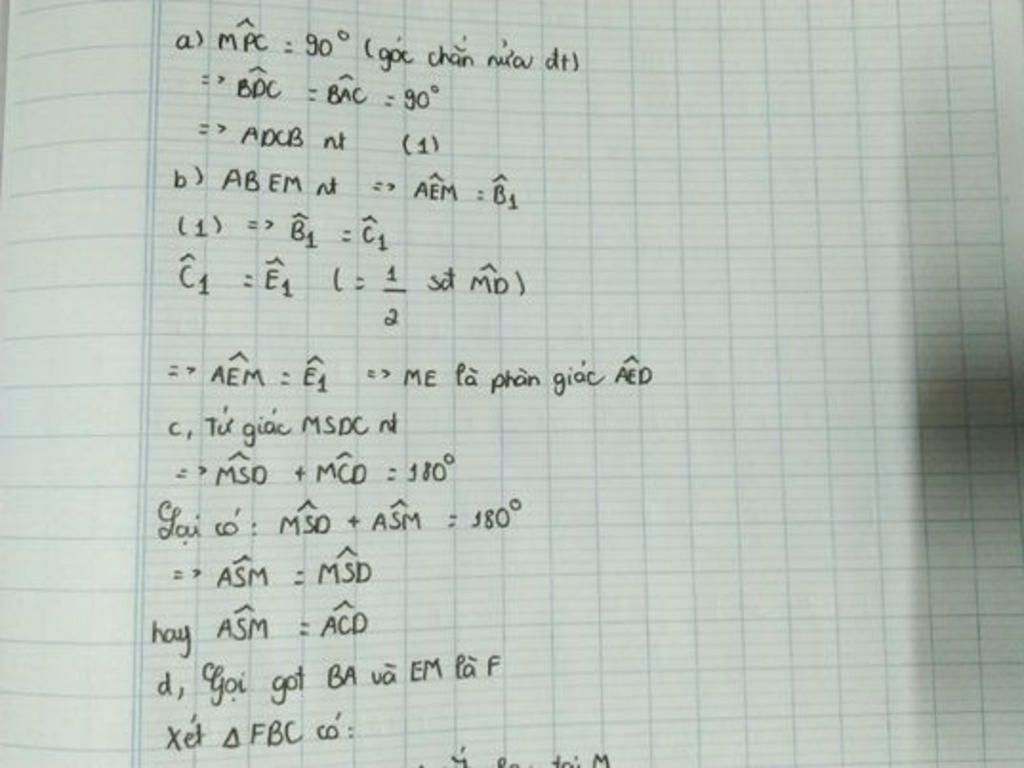 a) MP̂C = 90° (góc chắn nửa đt)
=> BD̂C = BÂC = 90°
=> ADCB nt (1)
b) ABEM nt => AÊM = B̂₁
(1) => B̂₁ = Ĉ₁
Ĉ₁ = Ê₁ (= 1/2 sđ MD̂)
=> AÊM = Ê₁ => ME là phân giác AÊD
c, Tứ giác MSDC nt
=> MŜD + MĈD = 180°
Lại có: MŜD + AŜM = 180°
=> AŜM = MŜD
hay AŜM = AĈD
d, Gọi gđt BA và EM là F
Xét Δ FBC có:
tại M